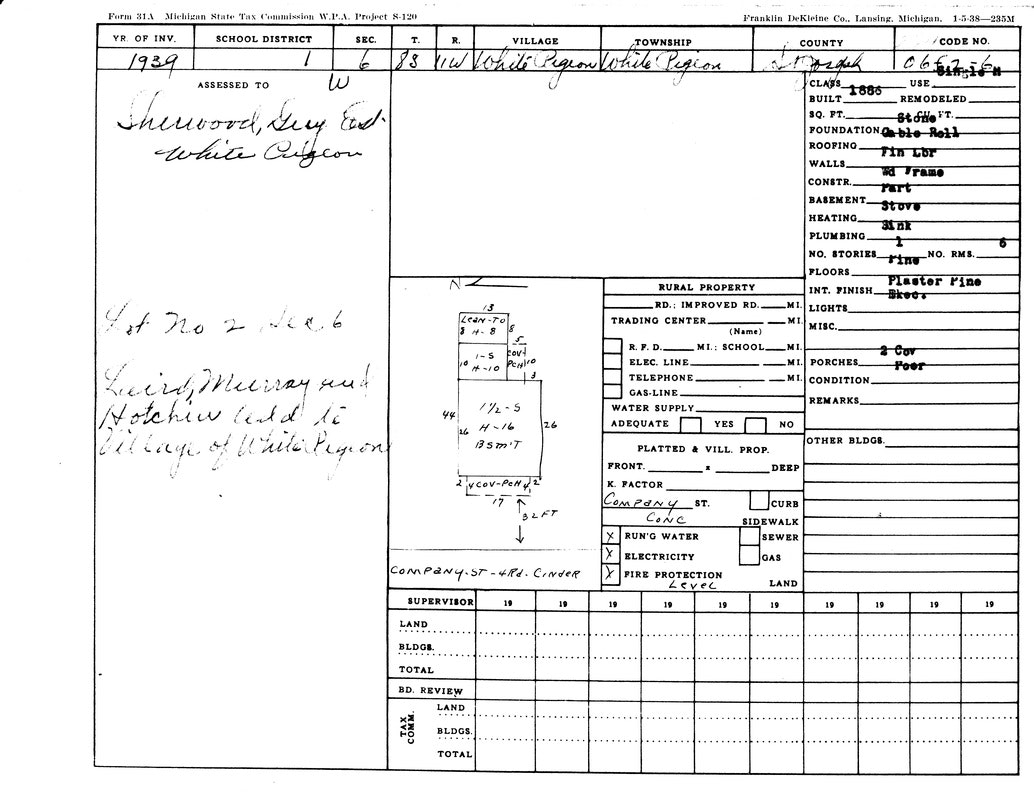 Form 31A Michigan State Tax Commission W.P.A. Project S-120
Franklin DeKleine Co., Lansing, Michigan. 1-5-38—235M
YR. OF INV. SCHOOL DISTRICT SEC. T. R. VILLAGE TOWNSHIP COUNTY CODE NO.
1939 1 6 8S 11W White Pigeon White Pigeon St Joseph
ASSESSED TO W
Sherwood, Guy Est.
White Pigeon
Lot No 2 Sec 6
Laird, Murray and
Hotchin add to
Village of White Pigeon
CLASS USE Single M
BUILT 1886 REMODELED
SQ. FT. CU. FT.
FOUNDATION Stone
ROOFING Gable Roll
WALLS Fin Lbr
CONSTR. Wd Frame
BASEMENT Part
HEATING Stove
PLUMBING Sink
NO. STORIES 1 NO. RMS. 6
FLOORS Pine
INT. FINISH Plaster Pine
LIGHTS Elec.
MISC.
PORCHES 2 Cov
CONDITION Poor
REMARKS
OTHER BLDGS.
N
13
Lean-To
8 H-8 8
5
1-S
10 H-10
Cov
PcH 10
3
1 1/2-S
44 26 H-16 26
BSm'T
2 4 COV-PCH 4 2
17
32 FT
Company-St-4Rd. Cinder
RURAL PROPERTY
RD.; IMPROVED RD. MI.
TRADING CENTER MI.
(Name)
R. F. D. MI.; SCHOOL MI.
ELEC. LINE MI.
TELEPHONE MI.
GAS-LINE
WATER SUPPLY
ADEQUATE YES NO
PLATTED & VILL. PROP.
FRONT. x DEEP
K. FACTOR
Company ST. CURB
Conc SIDEWALK
X RUN'G WATER SEWER
X ELECTRICITY GAS
X FIRE PROTECTION
Level LAND
SUPERVISOR 19 19 19 19 19 19 19 19 19 19
LAND
BLDGS.
TOTAL
BD. REVIEW
TAX COMM.
LAND
BLDGS.
TOTAL